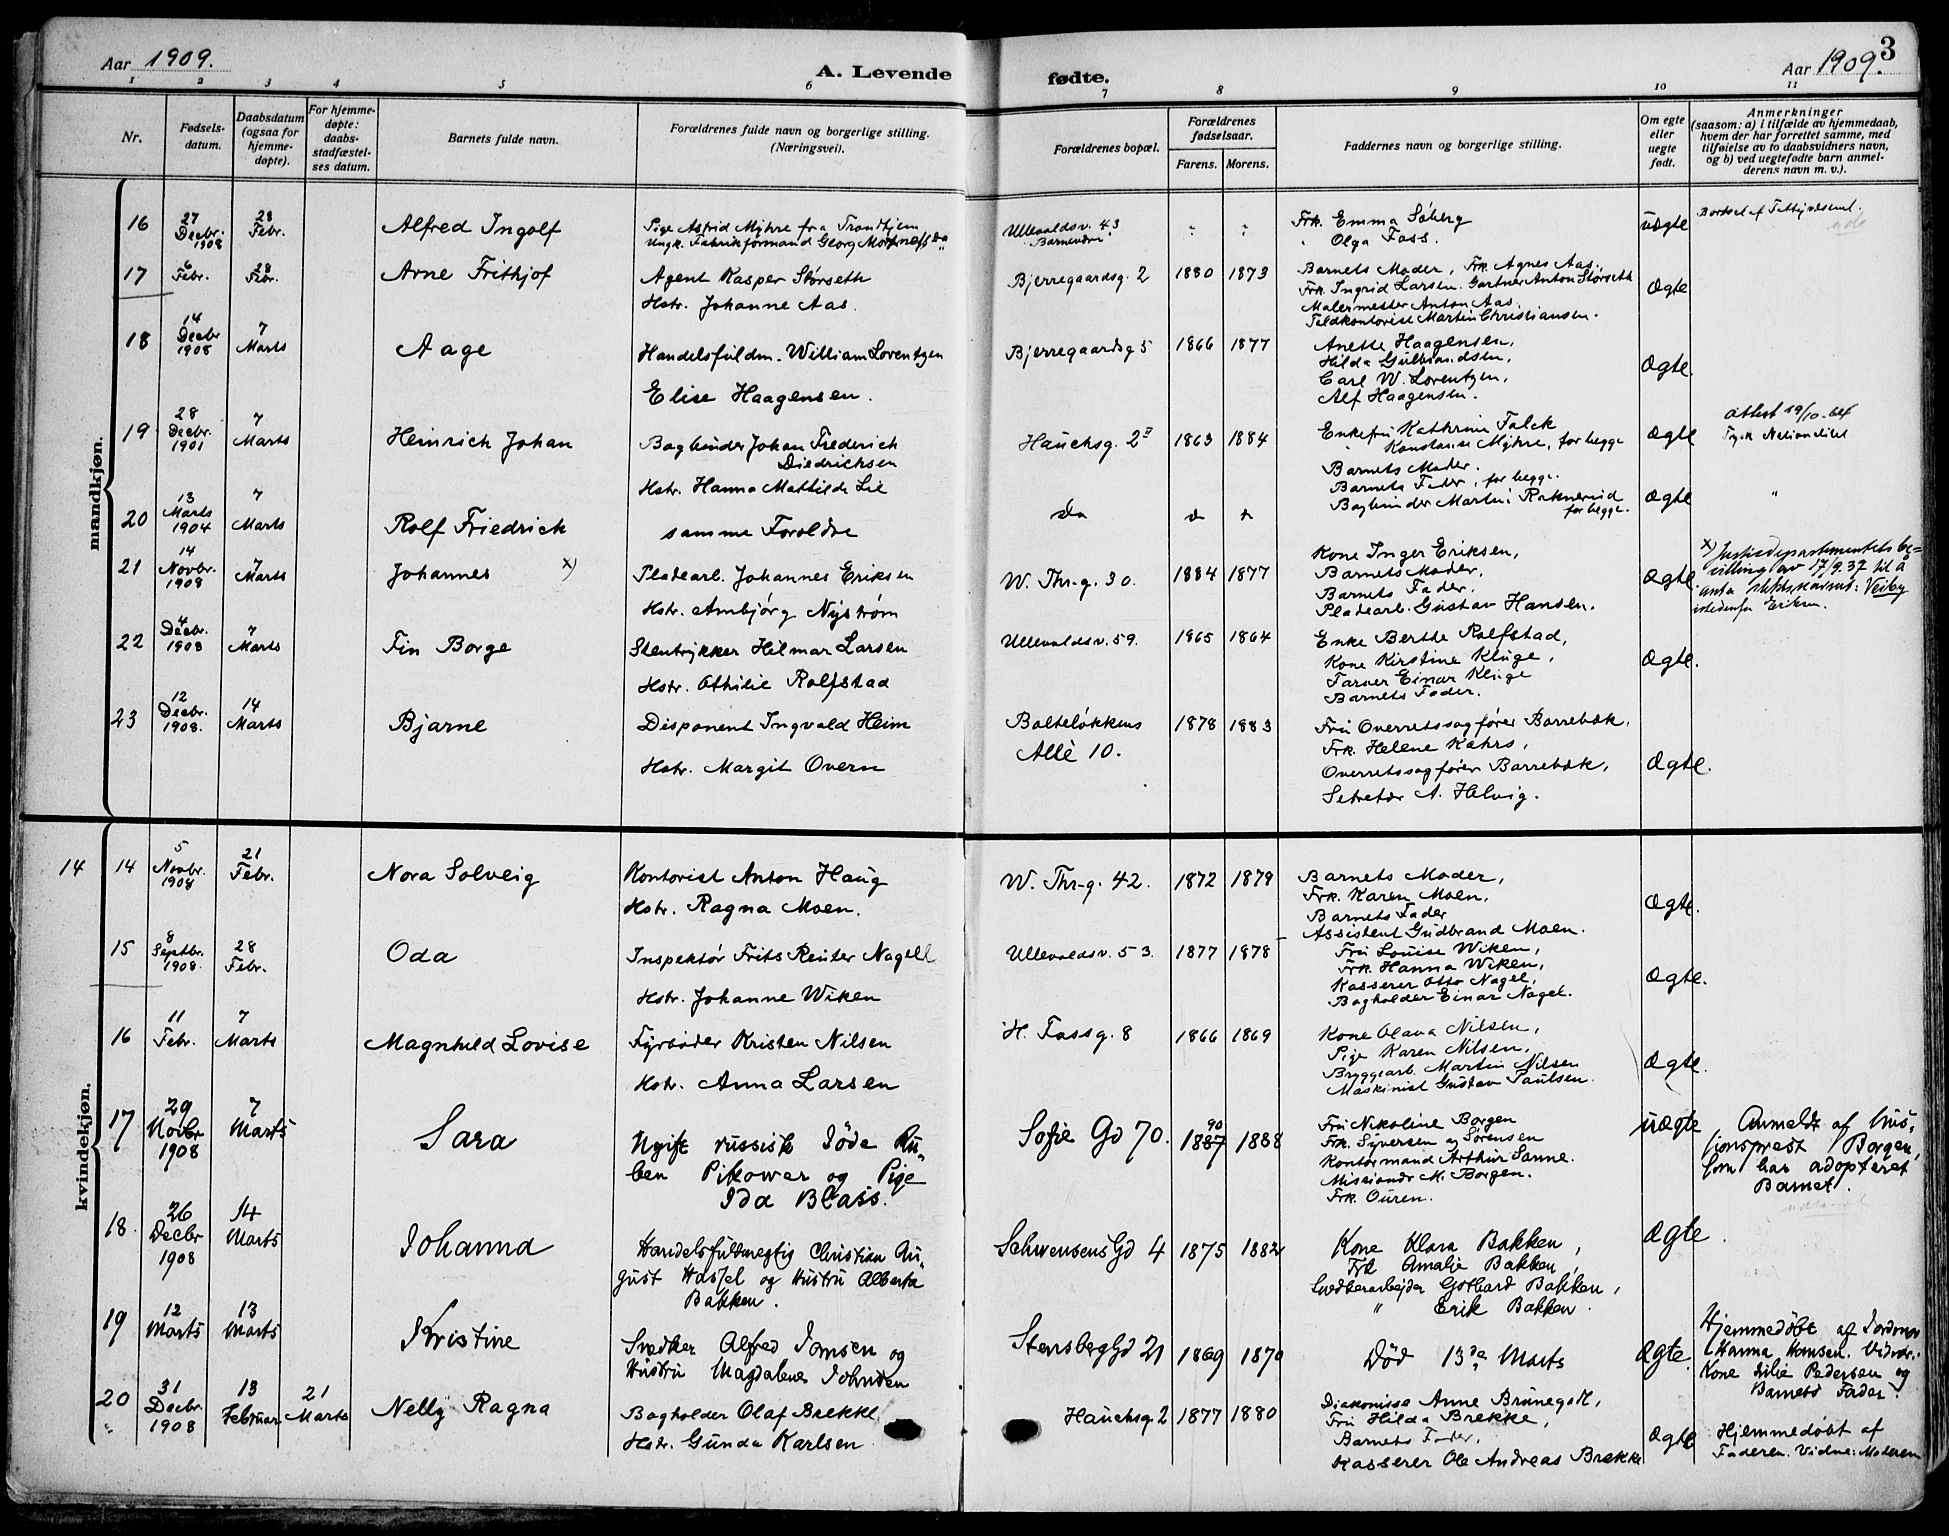 Aar 1909.
A. Levende
fødte.
Aar 1909.
3
1 2 3 4 5 6 7 8 9 10 11
Nr.
Fødsels-
datum.
Daabsdatum
(ogsaa for
hjemme-
døpte).
For hjemme-
døpte:
daabs-
stadfæstel-
ses datum.
Barnets fulde navn.
Forældrenes fulde navn og borgerlige stilling.
(Næringsvei).
Forældrenes bopæl.
Forældrenes
fødselsaar.
Farens. Morens.
Faddernes navn og borgerlige stilling.
Om egte
eller
uegte
født.
Anmerkninger
(saasom: a) i tilfælde av hjemmedaab,
hvem der har forrettet samme, med
tilføielse av to daabsvidners navn,
og b) ved uegtefødte barn anmel-
derens navn m. v.).
mandkjøn.
16
27
Decbr.
1908
28
Febr.
Alfred Ingolf
Pige Astrid Myhre fra Trondhjem
Ungk. Fabrikformand Georg
Ullevoldsv. 43
Frk. Emma Søberg
" Olga Foss.
uægte
17
6
Febr.
28
Febr.
Arne Frithjof
Agent Kasper Størseth
Hstr. Johanne Aas.
Bjerregaardsg. 2
1880 1873
Barnets Moder, Frk. Agnes Aas.
Frk. Ingrid Larsen. Gartner Anton Størseth
Malermester Anton Aas.
Martin Christiansen.
Ægte
18
14
Decbr
1908
7
Marts
Aage
Handelsfuldm. William Lorentzen
Elise Haagensen.
Bjerregaardsg 5
1866 1877
Anette Haagensen,
Hilda Gulbrandsen,
Carl W. Lorentzen,
Alf Haagensen.
Ægte.
19
28
Decbr.
1901
7
Marts
Heinrich Johan
Bogbinder Johan Frederich
Diedrichsen
Hstr. Hanna Mathilde Lie
Hauchsg. 2 II
1863 1884
Enkefru Kathrine Falck
" Konstanse Myhre, for begge
Barnets Moder.
Barnets Fader, for begge.
Ægte
attest 19/10
20
13
Marts
1904
7
Marts
Rolf Friedrich
samme Foroldre
do
Bogbinder Martin Raknerud
for begge.
Ægte
"
21
14
Novbr.
1908
7
Marts
Johannes x)
Pladearb. Johannes Eriksen
Hstr. Ambjørg Nystrøm
W. Thr-g. 30.
1884 1877
Kone Inger Eriksen,
Barnets Moder,
Barnets Fader,
Pladearb. Gustav Hansen.
Ægte
x) Justisdepartementets be-
villing av 17/9.37 til å
anta slektsnavnet: Veiby
istedenfor Eriksen.
22
4
Decbr.
1908
7
Marts
Fin Borge
Stentrykker Hilmar Larsen
Hstr. Othilie Rolfstad
Ullevoldsv. 59.
1865 1864
Enke Berthe Rolfstad,
Kone Kirstine Kluge,
Farver Einar Kluge
Barnets Fader.
Ægte.
23
12
Decbr.
1908.
14
Marts
Bjarne
Disponent Ingvald Heim
Hstr. Margit Overn
Bolteløkkens
Allè 10.
1878 1883
Fru Overretssagfører Borrebæk,
Frk. Helene Kahrs,
Overretssagfører Borrebæk,
Sekretær A. Helvig.
Ægte.
kvindekjøn.
14
14
5
Novbr.
1908
21
Febr.
Nora Solveig
Kontorist Anton Haug
Hstr. Ragna Moen.
W. Thr-g. 42.
1872 1879
Barnets Moder,
Frk. Karen Moen,
Barnets Fader
Assistent Gudbrand Moen.
Ægte.
15
8
Septbr.
1908.
28
Febr.
Oda
Inspektør Frits Reuter Nagell
Hstr. Johanne Wiken
Ullevoldsv. 53.
1877 1878
Fru Louise Wiken,
Frk. Hanna Wiken,
Kasserer Otto Nagel,
Bogholder Einar Nagel.
Ægte.
16
11
Febr.
7
Marts
Magnhild Lovise
Fyrbøder Kristen Nilsen
Hstr. Anna Larsen
H. Fossg. 8
1866 1869
Kone Olava Nilsen,
Pige Karen Nilsen,
Bryggearb. Martin Nilsen
Maskinist Gustav Paulsen.
Ægte.
17
29
Novbr
1908
7
Marts
Sara
Ugift russisk Jøde Ru-
ben Pikower og Pige
Ida Blass.
Sofie Gd 70.
90
1887 1888
Fru Nikoline Borgen
Frk. Syversen og Sørensen
Kontormand Arthur Sanne.
Missionær M. Borgen.
Frk. Ouren.
uægte
Anmeldt af Mis-
sionsprest Borgen,
som har adopteret
Barnet.
18
26
Decbr
1908
14
Marts
Johanna
Handelsfuldmegtig Christian Au-
gust Hassel og Hustru Alberta
Bakken.
Schwensens Gd 4
1875 1882
Kone Klara Bakken,
Frk Amalie Bakken,
Snedkerarbejder Gothard Bakken,
" Erik Bakken.
Ægte
19
12
Marts
13
Marts
Kristine
Snedker Alfred Jonsen og
Hustru Magdalene Johnsen
Stensberg Gd 21
1869 1870
Død 13de Marts
Ægte.
Hjemmedøbt af Jordmor
Hanna Hansen. Vidner:
Kone Lilie Pedersen og
Barnets Fader.
20
31
Decbr.
1908
13
Februar
21
Marts
Nelly Ragna
Bogholder Olaf Brekke
Hstr. Gunda Karlsen.
Hauchsg. 2
1877 1880
Diakonisse Anne Brunegodt,
Fru Hilda Brekke,
Barnets Fader,
Kasserer Ole Andreas Brekke
Ægte
Hjemmedøbt af
Faderen. Vidne: Moderen